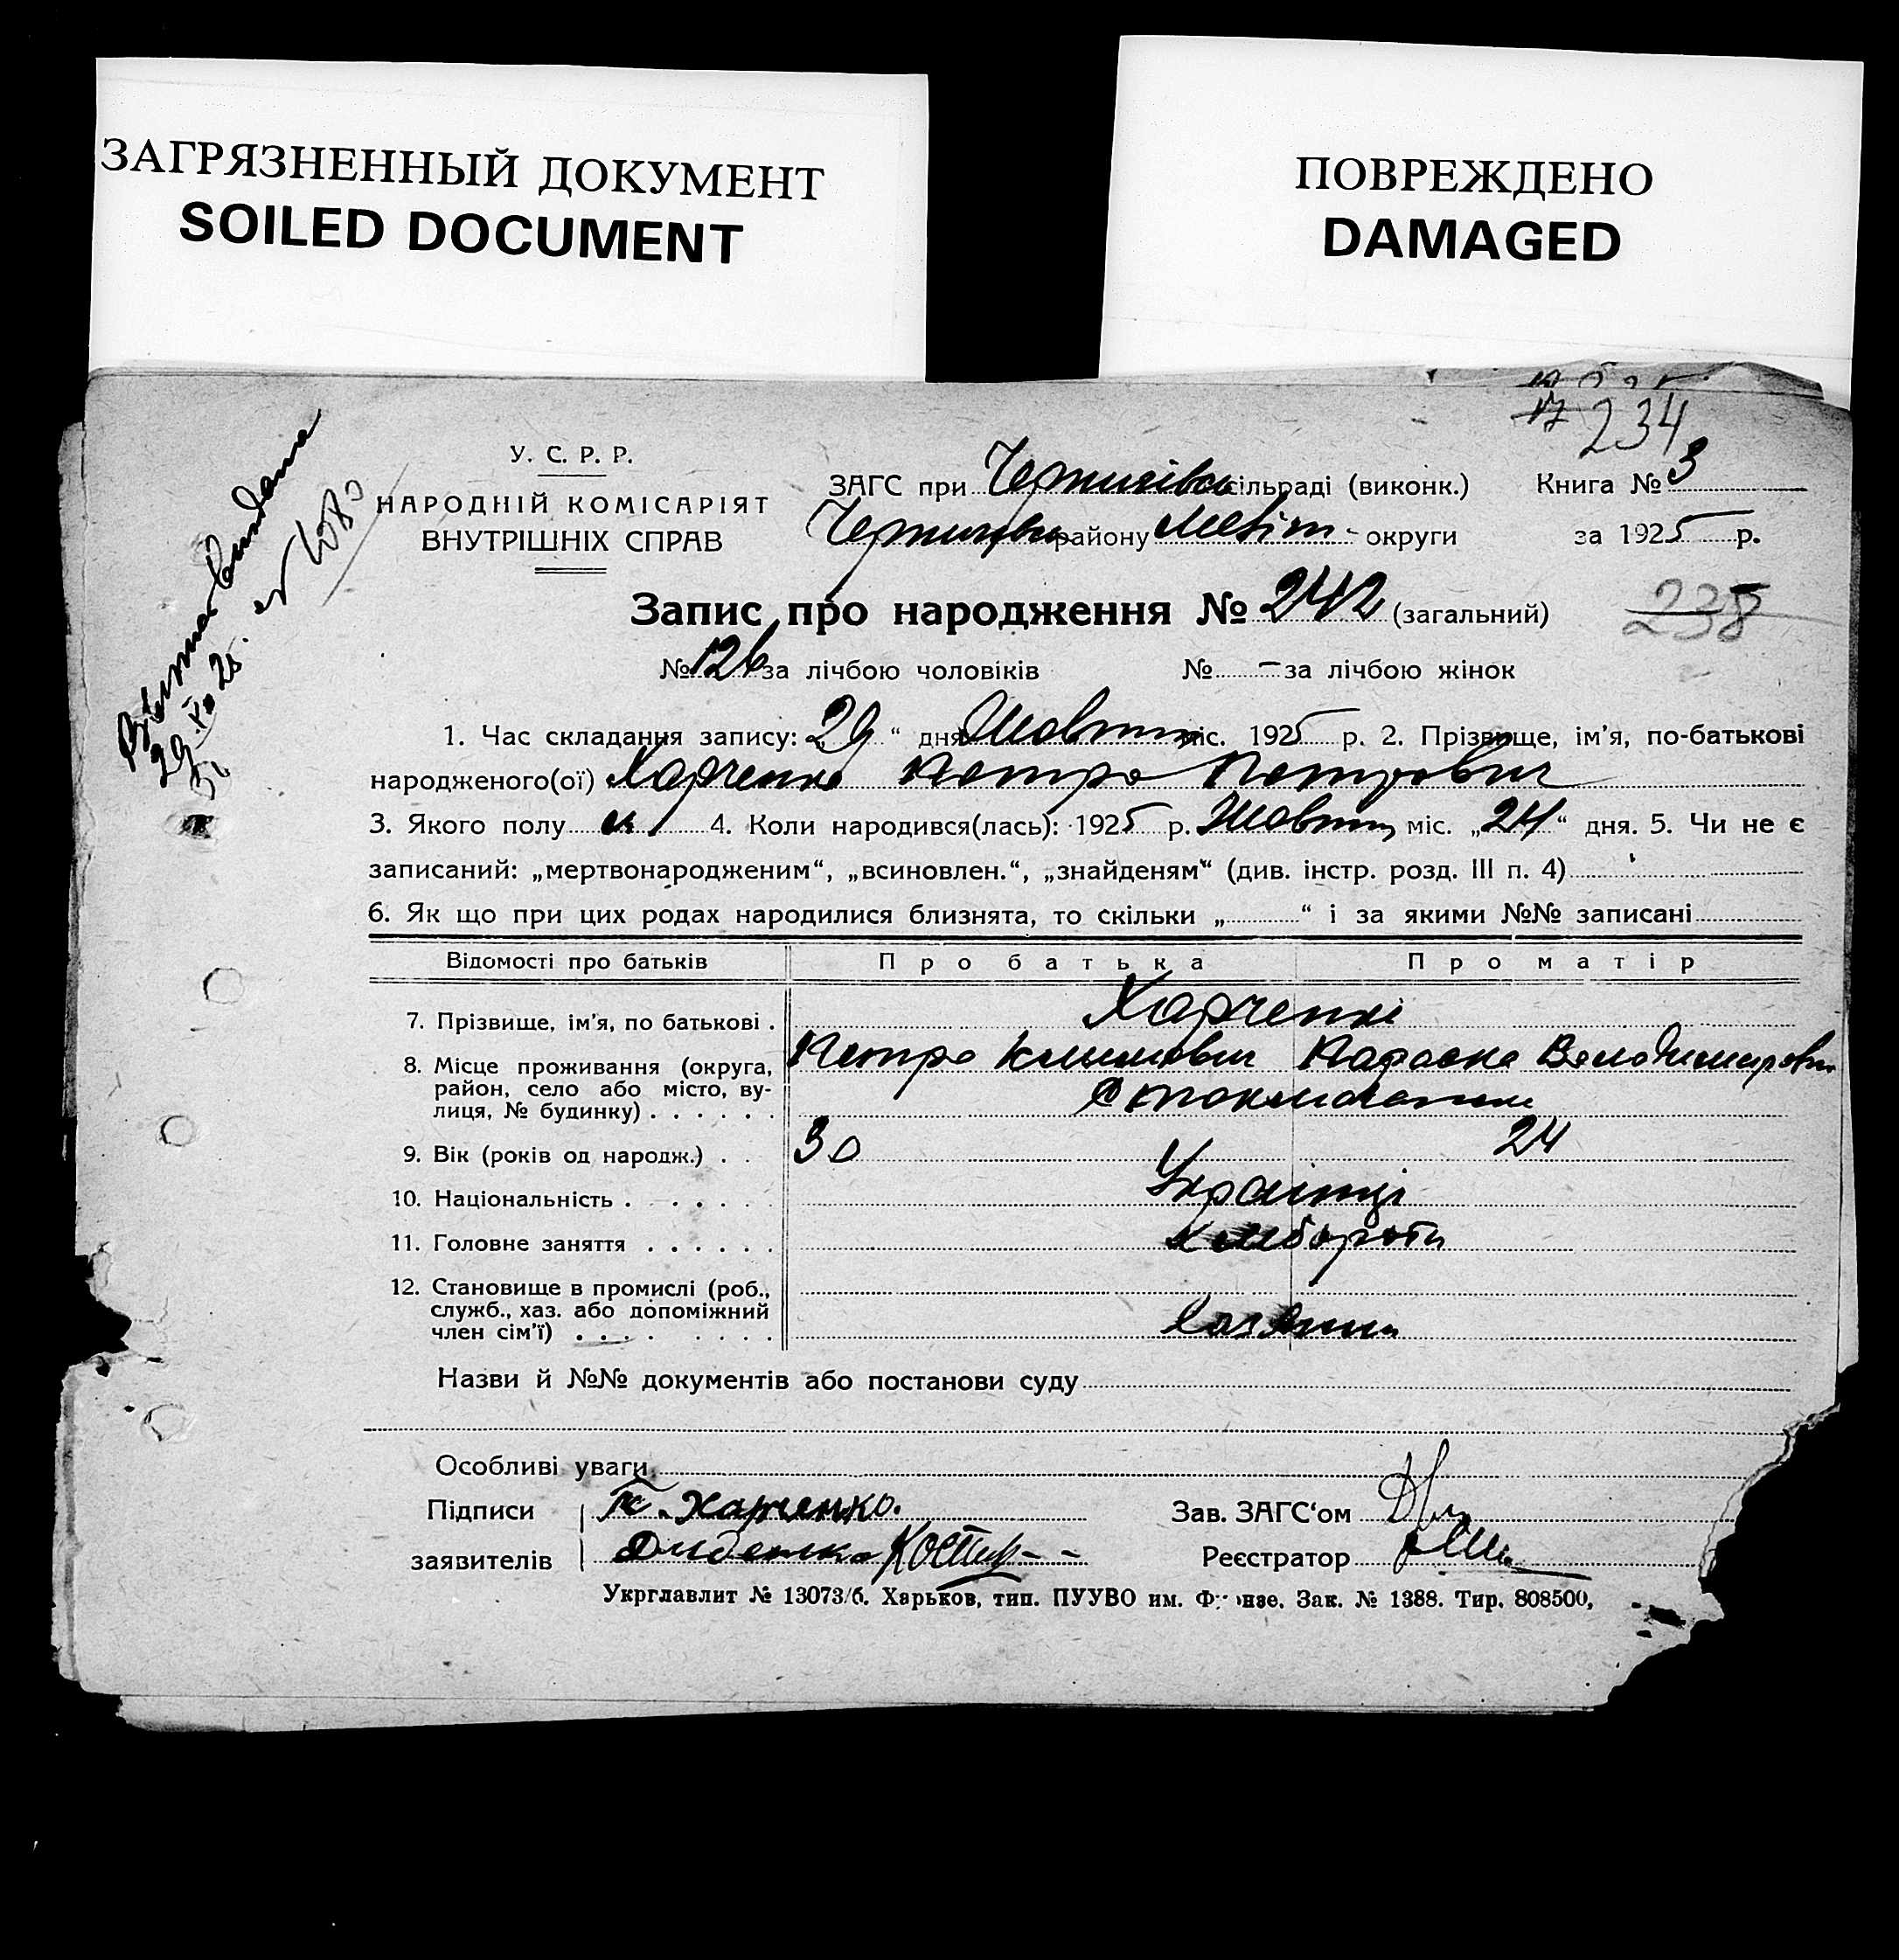 ЗАГРЯЗНЕННЫЙ ДОКУМЕНТ
SOILED DOCUMENT
ПОВРЕЖДЕНО
DAMAGED
234
У. С. Р. Р.
НАРОДНІЙ КОМІСАРІЯТ
ВНУТРІШНІХ СПРАВ
ЗАГС при сільраді (виконк.) Книга № 3
району Меліт - округи за 1925 р.
Запис про народження № 242 (загальний)
238
№ 126 за лічбою чоловіків № — за лічбою жінок
1. Час складання запису: „29“ дня Жовтня міс. 1925 р. 2. Прізвище, ім’я, по-батькові
народженого(ої) Харченко Петро Петрович
3. Якого полу ч 4. Коли народився(лась): 1925 р. Жовтня міс. „24“ дня. 5. Чи не є
записаний: „мертвонародженим“, „всиновлен.“, „знайденям“ (див. інстр. розд. III п. 4)
6. Як що при цих родах народилися близнята, то скільки „ “ і за якими №№ записані
Відомості про батьків Про батька Про матір
7. Прізвище, ім’я, по батькові . Харченкі
Петро Климович Параска Володимировн
8. Місце проживання (округа,
район, село або місто, ву-
лиця, № будинку) . . . . . .
9. Вік (років од народж.) . . 30 24
10. Національність . . . . . . Українці
11. Головне заняття . . . . . . хлібороби
12. Становище в промислі (роб.,
служб., хаз. або допоміжний
член сім’ї) . . . . . . . . Хазяини
Назви й №№ документів або постанови суду
Особливі уваги
Підписи П. Харченко. Зав. ЗАГС‘ом
заявителів Реєстратор
Укрглавлит № 13073/б. Харьков, тип. ПУУВО им. Фрунзе. Зак. № 1388. Тир. 808500,